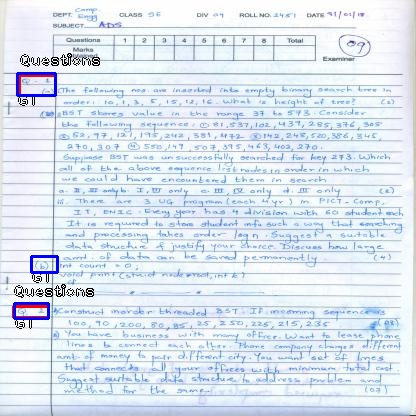 DEPT. Comp. Engg CLASS SE DIV 09 ROLL NO. 2451 DATE 31/01/18
SUBJECT ADS
Questions 1 2 3 4 5 6 7 8 Total
Marks Obtained
09
Examiner
Questions
Q. 1
GT
(a) The following nos. are inserted into empty binary search tree in
order: 10, 1, 3, 5, 15, 12, 16. What is height of tree? (2)
BST stores value in the range 37 to 573. Consider
the following sequence. ① 81, 537, 102, 439, 285, 376, 305
② 52, 97, 121, 195, 242, 381, 472 ③ 142, 248, 520, 386, 345
270, 307 ④ 550, 149, 507, 395, 463, 402, 270.
Suppose BST was unsuccessfully searched for key 273. Which
all of the above sequence list nodes in order in which
we could have encountered them in search
a. II, III only b. I, III only c. III, IV only d. III only (2)
iii. There are 3 UG program (each 4 yr) in PICT - Comp,
IT, ENTC. Every year has 4 division with 60 student each
It is required to store student info such a way that searching
and processing takes order log n. Suggest a suitable
data structure & justify your choice. Discuss how large
amt. of data can be saved permanently (4)
(b) int count = 0;
GT void print (struct node *root, int k)
Questions
Q. 2
GT
Construct inorder threaded BST. If incoming sequence is
100, 90, 200, 80, 85, 25, 250, 225, 215, 235
You have business with many office. Want to lease phone
lines to connect each other. Phone company charges different
amt. of money to pair different city. You want set of lines
that connects all your offices with minimum total cost
Suggest suitable data structure to address problem and
method for the same. (03)